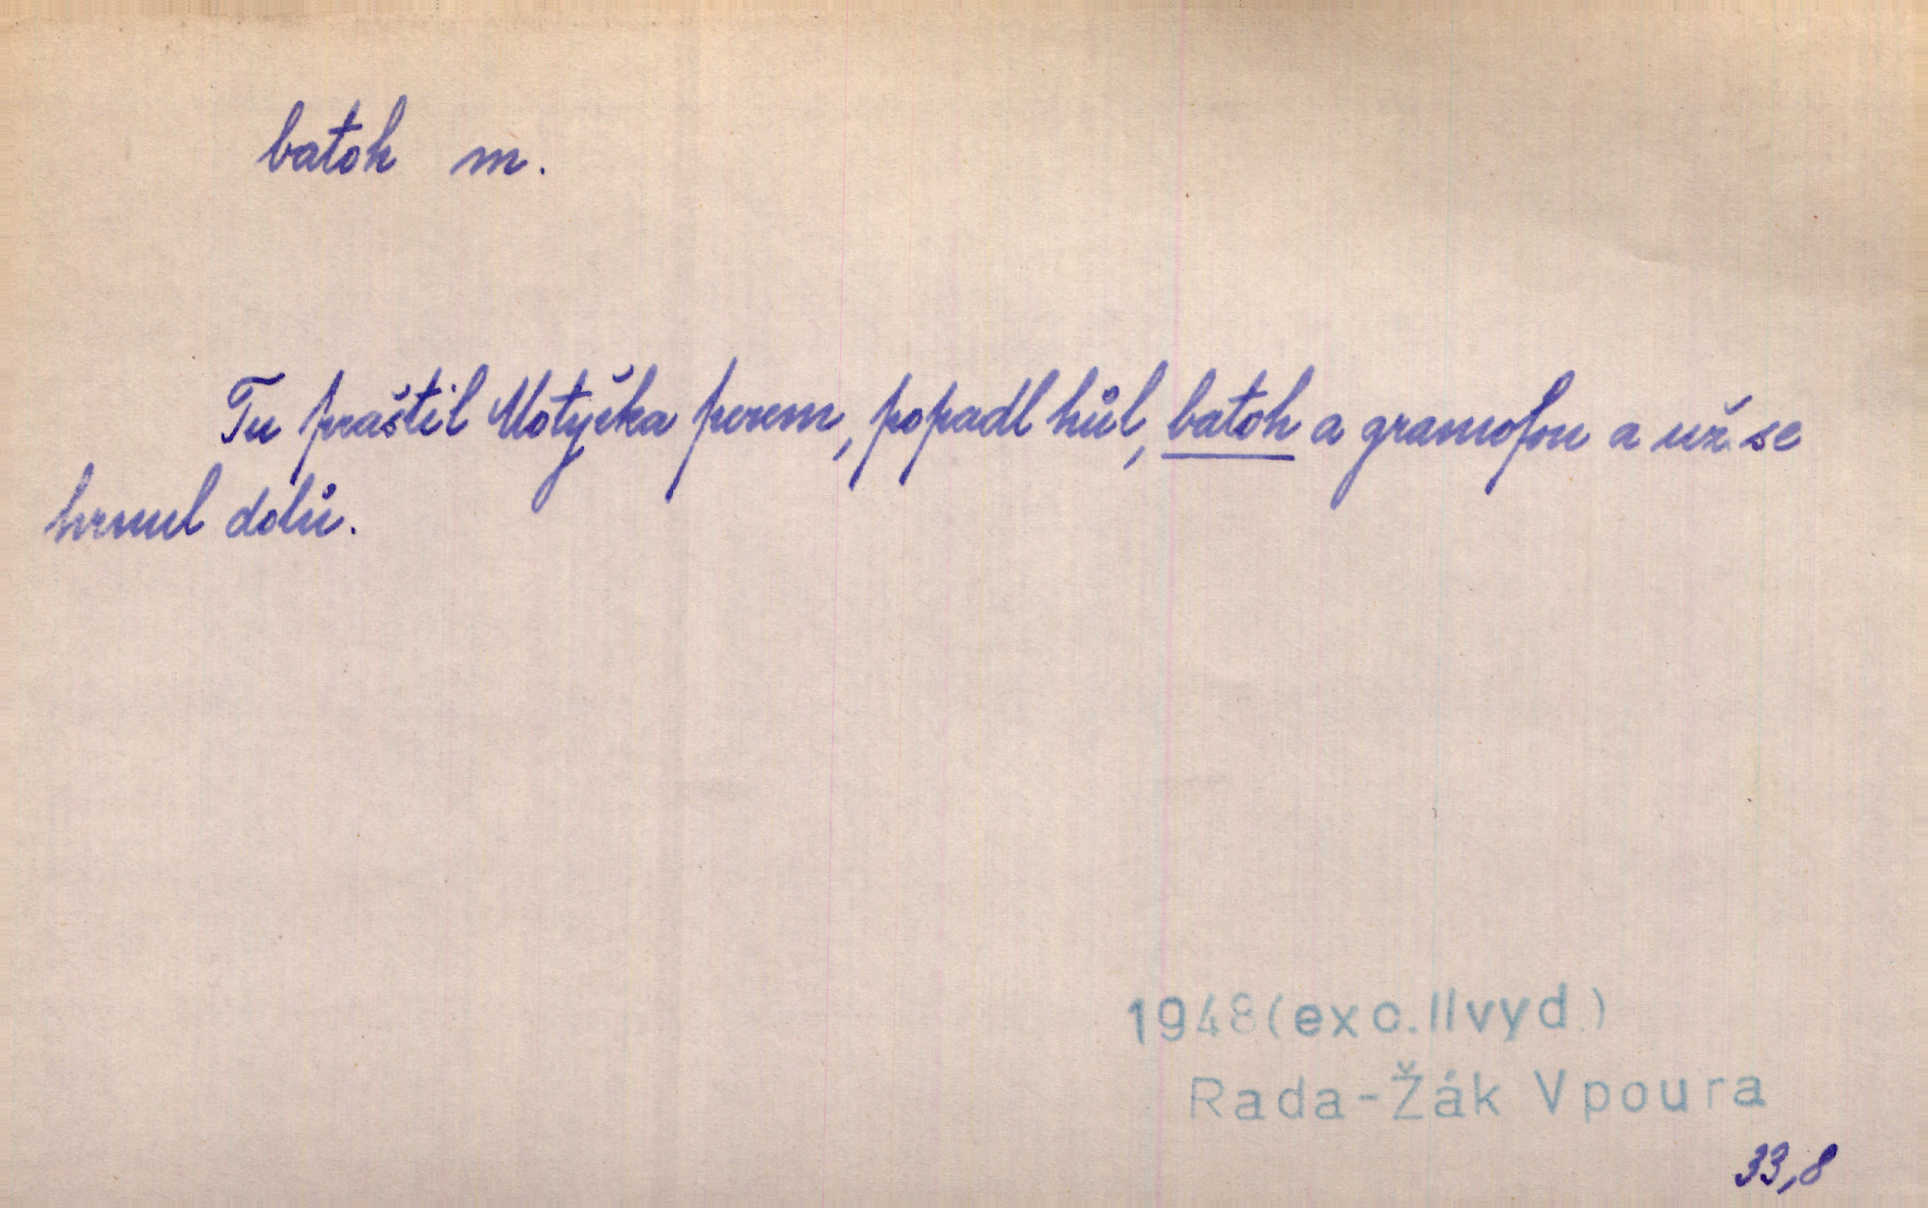 batoh m.
Tu praštil Motyčka perem, popadl hůl, batoh a gramofon a už se
hrnul dolů.
1948(exc.IIvyd.)
Rada-Žák Vpoura
33,8